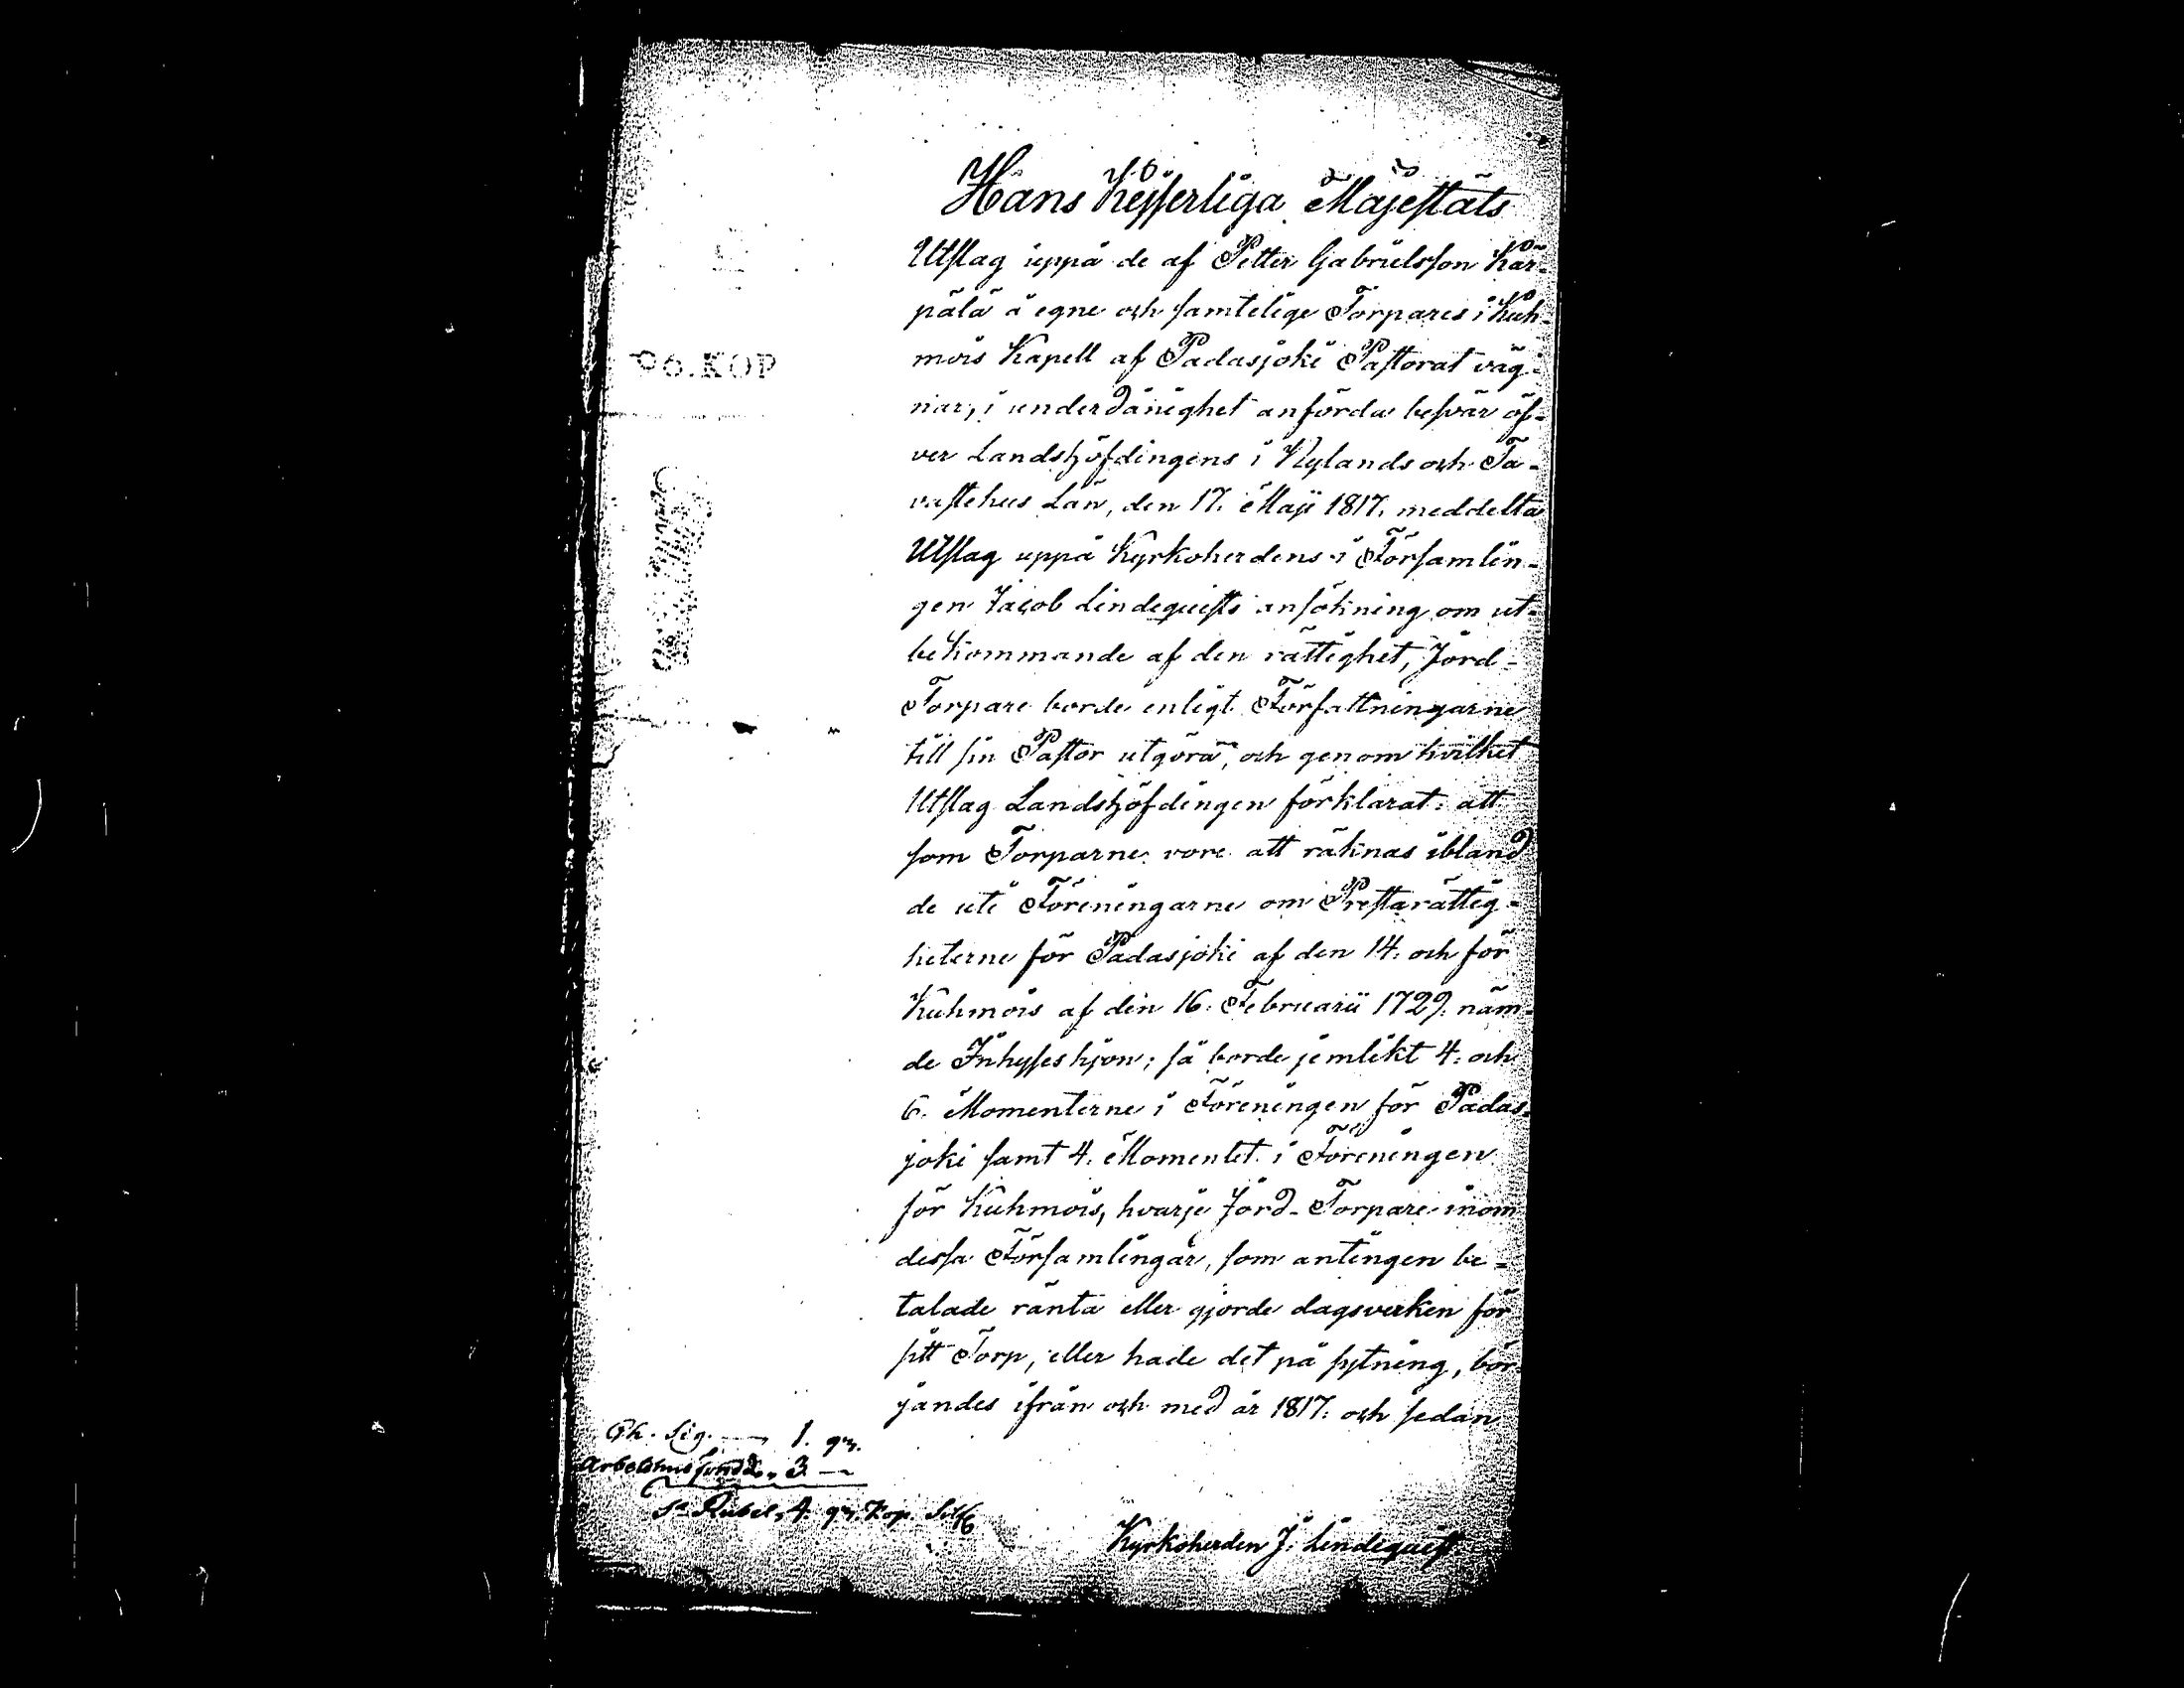 Hans Kejserliga Majestäts
Utslag uppå de af Petter Gabrielsson Kär-
pälä å egne och samtelige Torpares i Kuh-
mois Kapell af Padasjoki Pastorat väg-
nar, i underdånighet anförda besvär öf-
ver Landshöfdingens i Nylands och Ta-
vastehus Län, den 17. Maji 1817. meddelta
Utslag uppå Kyrkoherdens i Församlin-
gen Jacob Lindequists ansökning om ut-
bekommande af den rättighet, Jord-
Torpare borde enligt Författningarne
till sin Pastor utgöra, och genom hvilket
Utslag Landshöfdingen förklarat: att
som Torparne vore att räknas ibland
de uti Föreningarne om Prestarättig-
heterne för Padasjoki af den 14. och för
Kuhmois af den 16. Februarii 1729. näm-
de Inhyses hjon; så borde jemlikt 4. och
6. Momenterne i Föreningen för Padas-
joki samt 4. Momentet i Föreningen
för Kuhmois, hvarje Jord-Torpare inom
dessa Församlingar, som antingen be-
talade ränta eller gjorde dagsverken för
sitt Torp, eller hade det på sytning, bör-
jandes ifrån och med år 1817. och sedan
Ch. Sig. — 1. 92.
Arbetshusfond 2. 3 —
Sa Rubel, 4. 92. Kop. Silf
Kyrkoherden J. Lindequist.
96. KOP